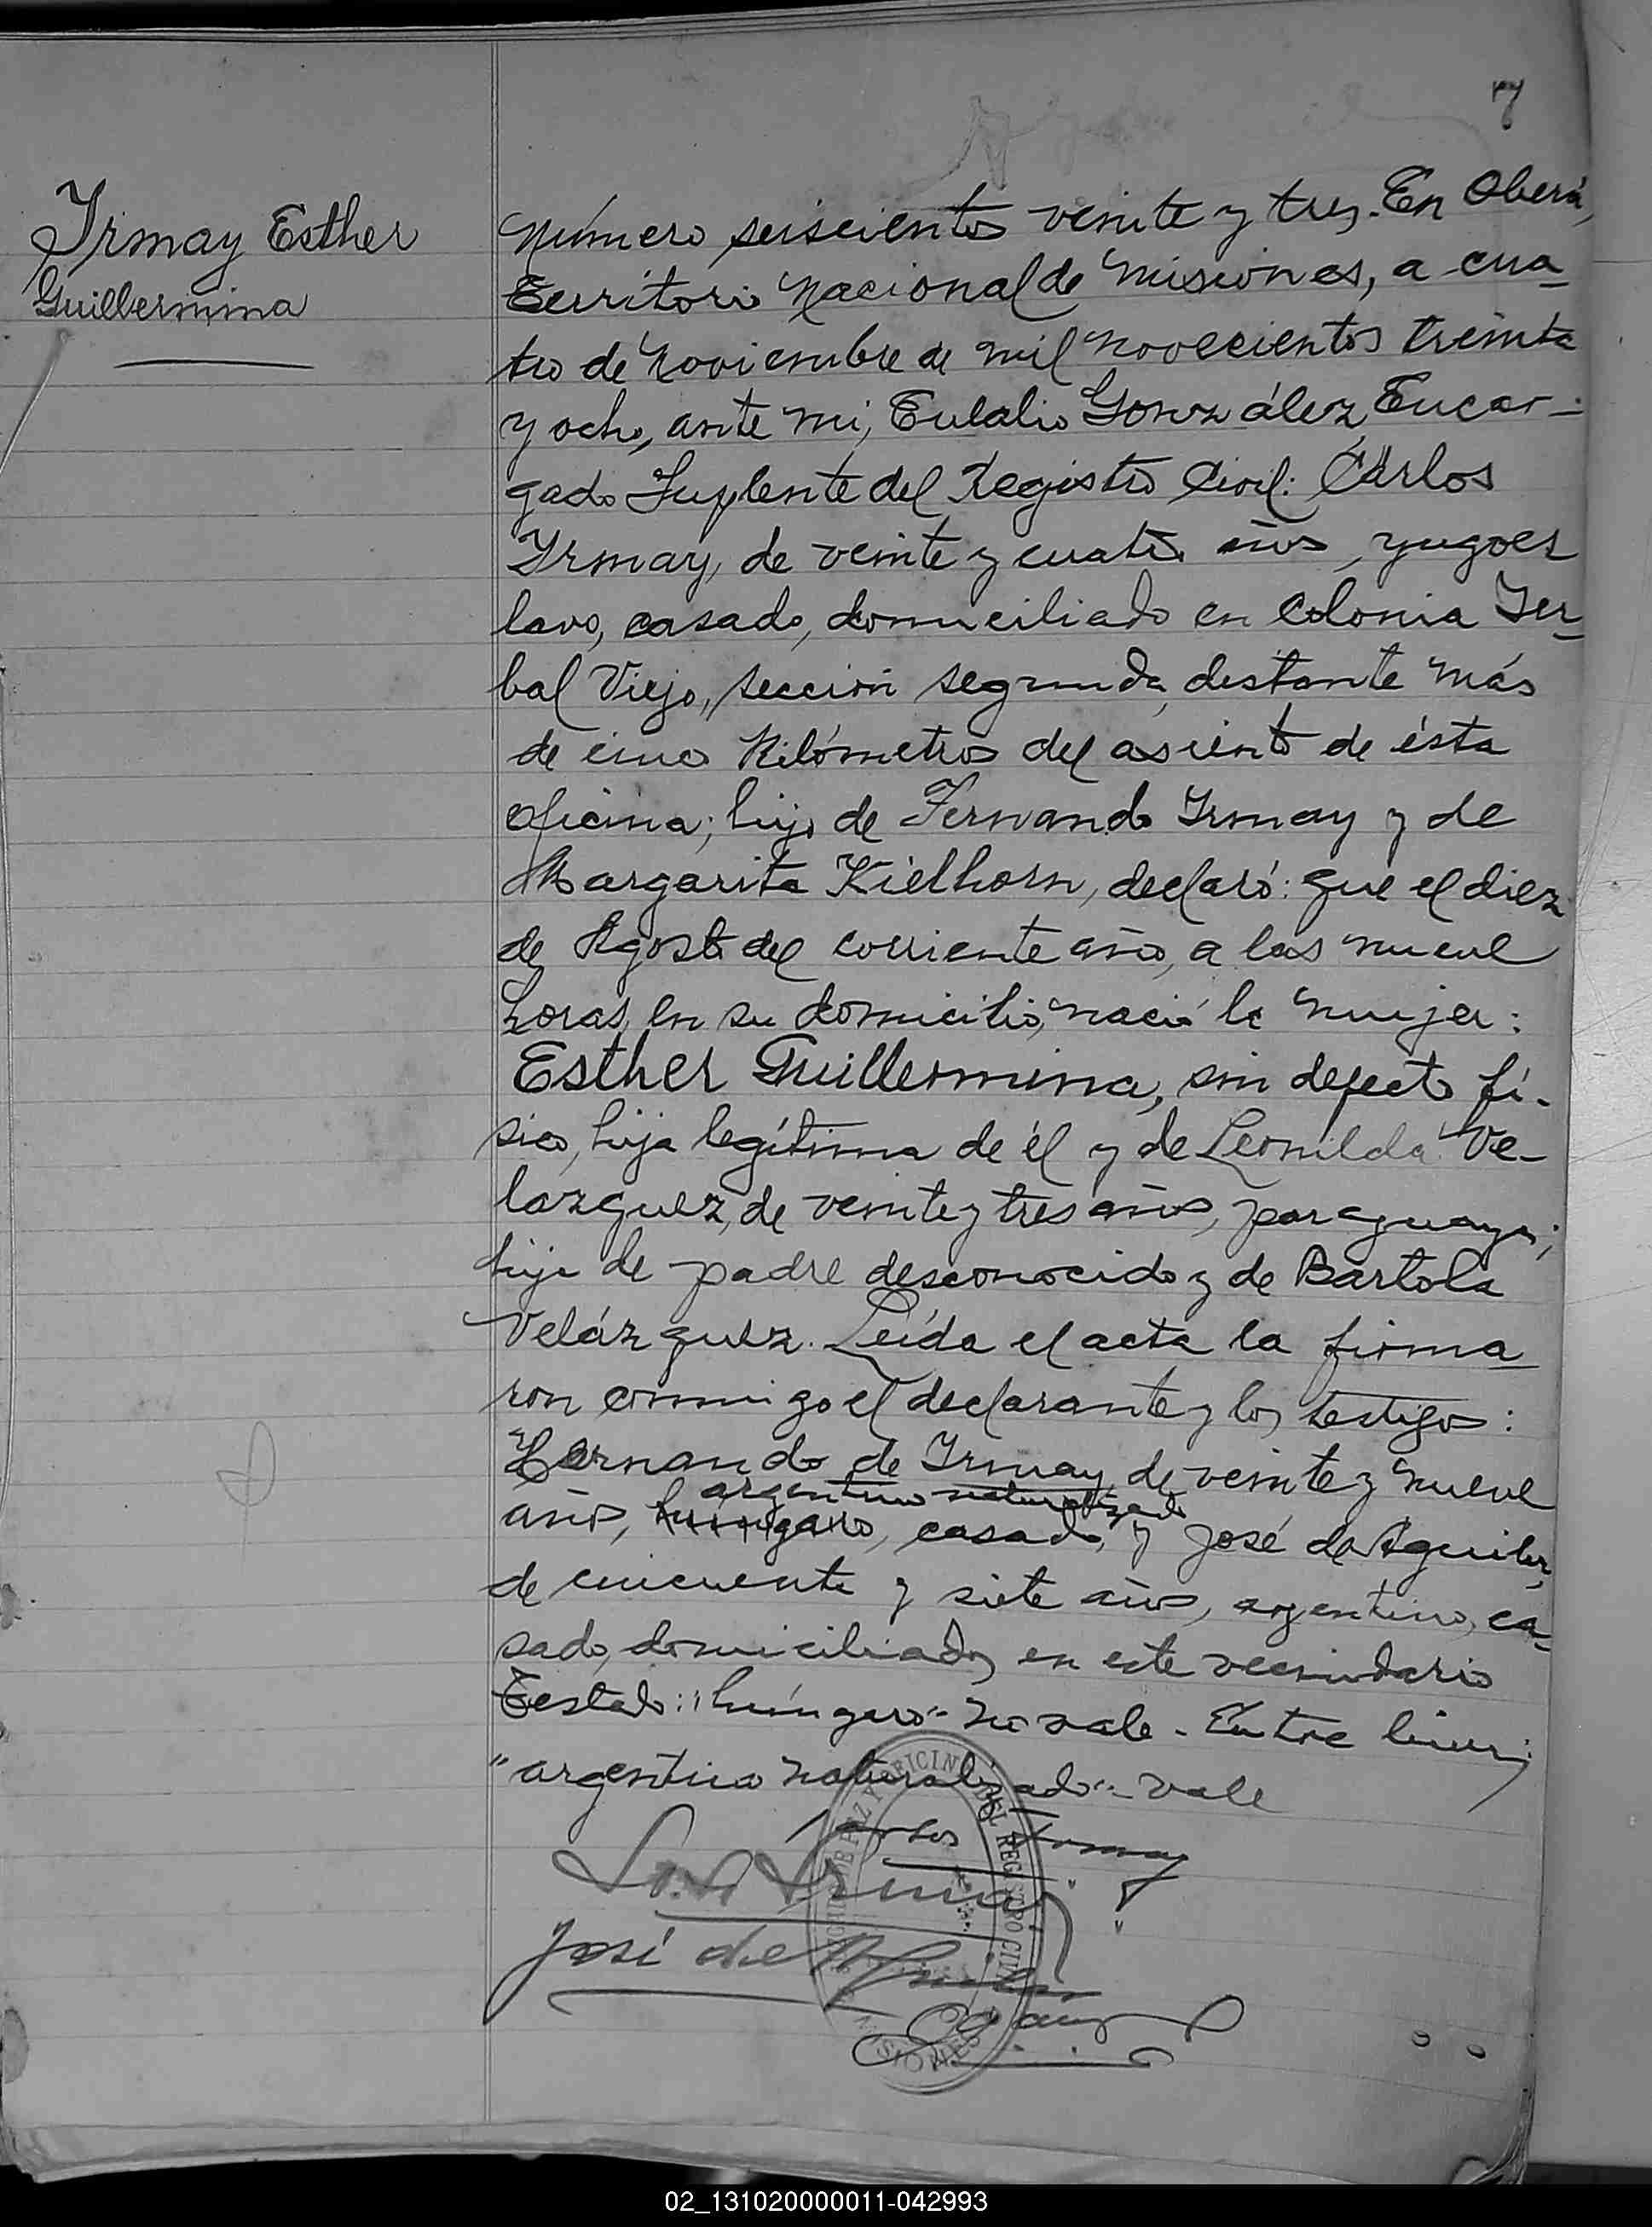 7
Yrmay Esther
Guillermina
Número seiscientos veinte y tres. En Oberá,
Territorio Nacional de Misiones, a cua-
tro de Noviembre de mil novecientos treinta
y ocho, ante mi, Eulalio González, Encar-
gado Suplente del Registro Civil: Cárlos
Yrmay, de veinte y cuatro años, yugoes
lavo, casado, domiciliado en Colonia Yer-
bal Viejo, sección segunda, distante más
de cinco Kilómetros del asiento de ésta
oficina; hijo de Fernando Yrmay y de
Margarita Kielhorn, declaró: que el diez
de Agosto del corriente año, a las nueve
horas, en su domicilio, nació la mujer:
Esther Guillermina, sin defecto fí-
sico, hija legítima de él y de Leonilda Ve-
lazquez, de veinte y tres años, paraguaya;
hija de padre desconocido y de Bartola
Velázquez. Leída el acta la firma
ron conmigo el declarante y los testigos:
Hernando de Yrmay, de veinte y nueve
argentino naturalizado
años, húngaro, casado, y José de Aguilar,
de cincuenta y siete años, argentino, ca-
sado, domiciliados en este vecindario
Testado: "húngaro" no vale. Entre lineas
"argentino naturalizado" vale
Carlos Irmay
José de Aguilar
DE PAZ Y OFICINA DEL REGISTRO CIVIL
MISIONES
02_131020000011-042993